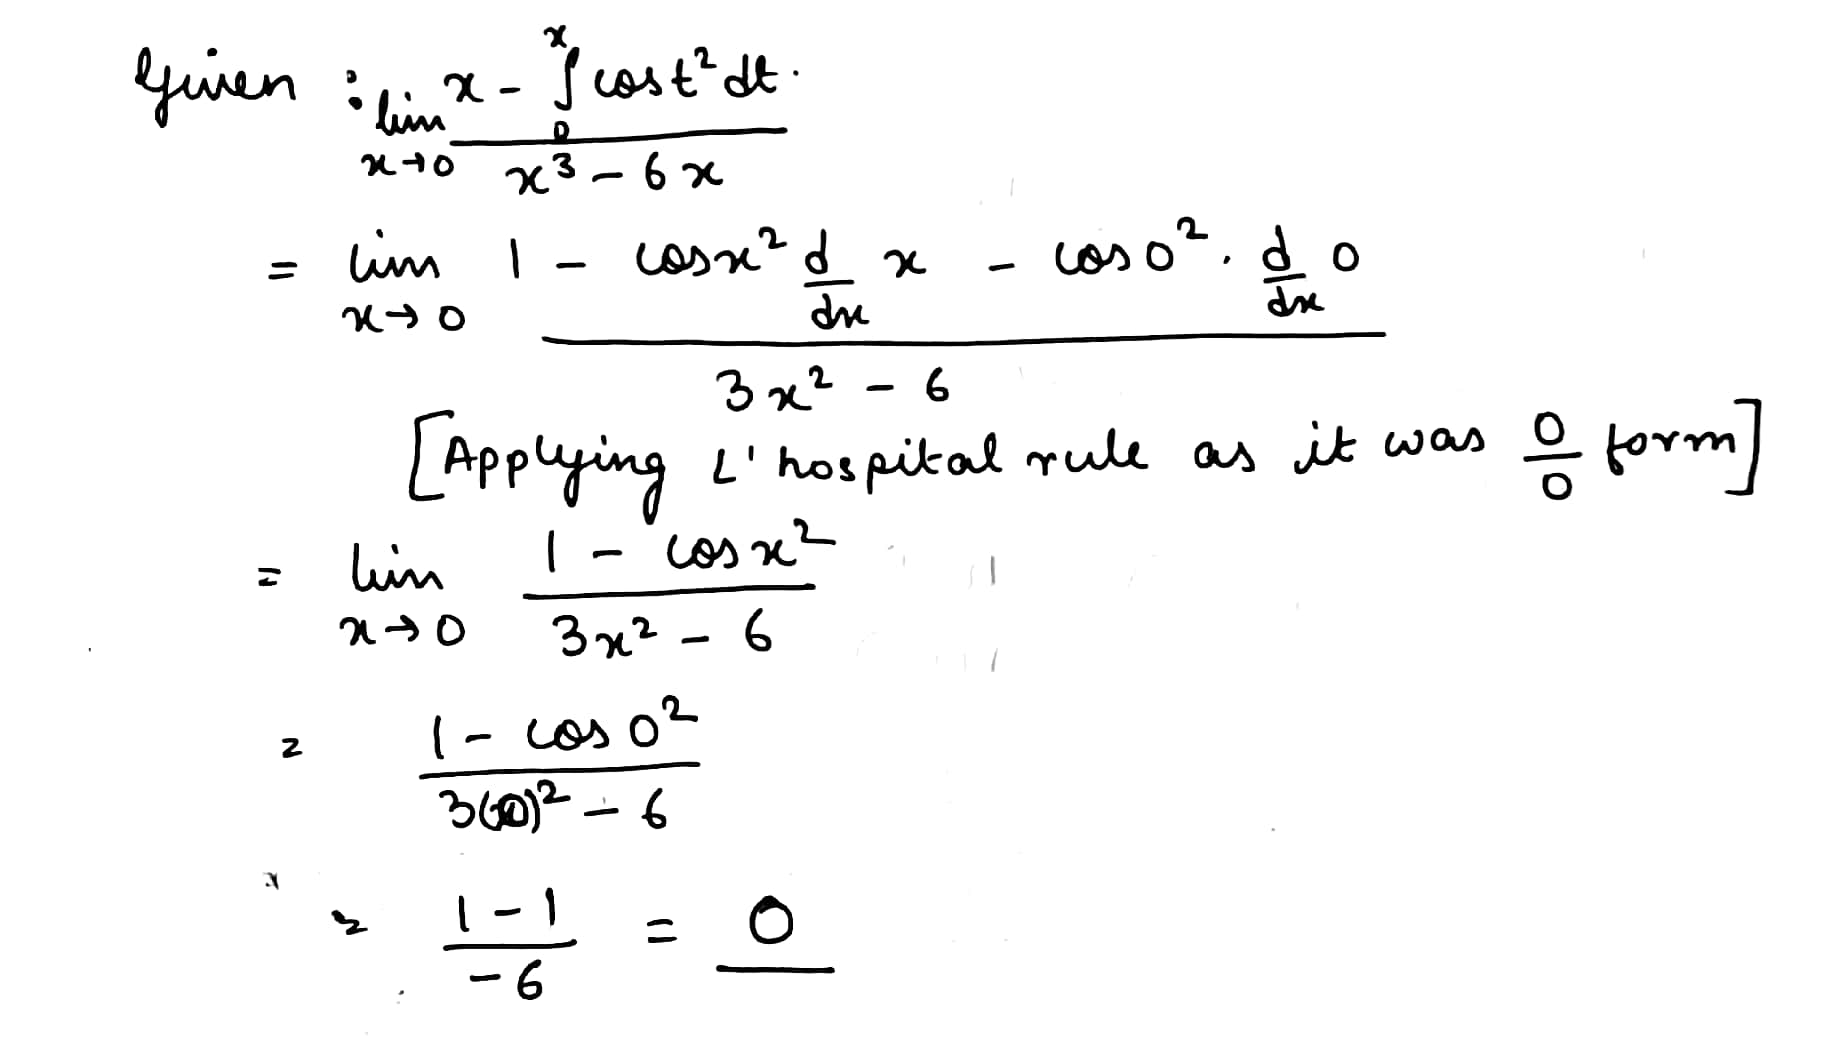 Given : lim x→0 (x - ∫₀ˣ cos t² dt.) / (x³ - 6x)
= lim x→0 (1 - cos x² d/dx x - cos 0² . d/dx 0) / (3x² - 6)
[Applying L' hospital rule as it was 0/0 form]
= lim x→0 (1 - cos x²) / (3x² - 6)
= (1 - cos 0²) / (3(0)² - 6)
= (1 - 1) / (-6) = 0